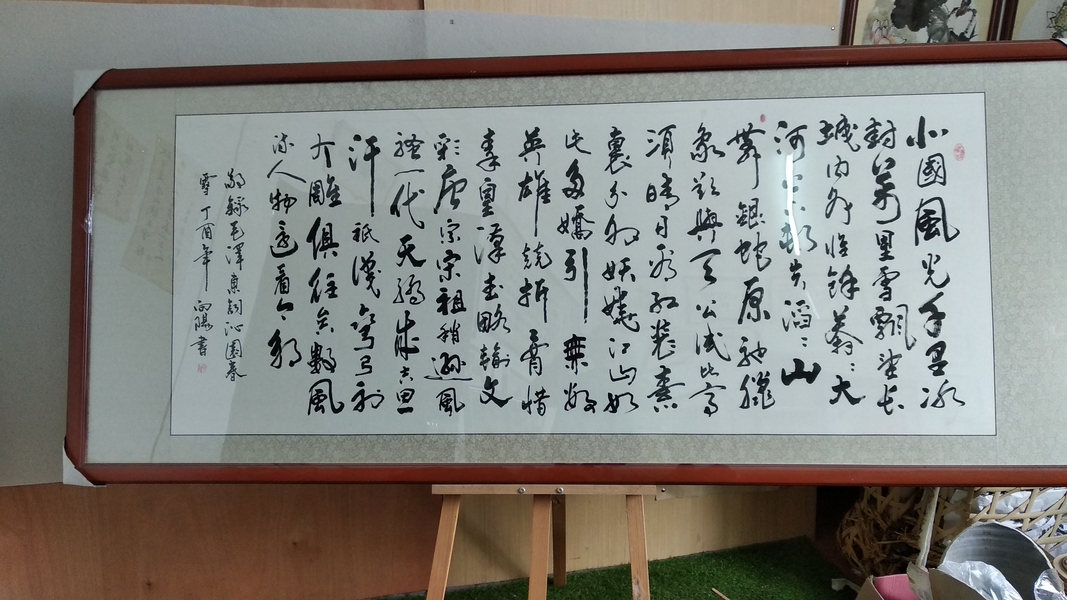 北國風光千里冰
封萬里雪飄望長
城内外惟餘莽〻大
河上下頓失滔〻山
舞銀蛇原馳臘
象欲與天公試比高
須晴日看紅裝素
裹分外妖嬈江山如
此多嬌引無數
英雄競折腰惜
秦皇漢武略輸文
彩唐宗宋祖稍遜風
騷一代天驕成吉思
汗祇識彎弓射
大雕俱往矣數風
流人物還看今朝
敬錄毛澤東詞沁園春
雪丁酉年向陽書